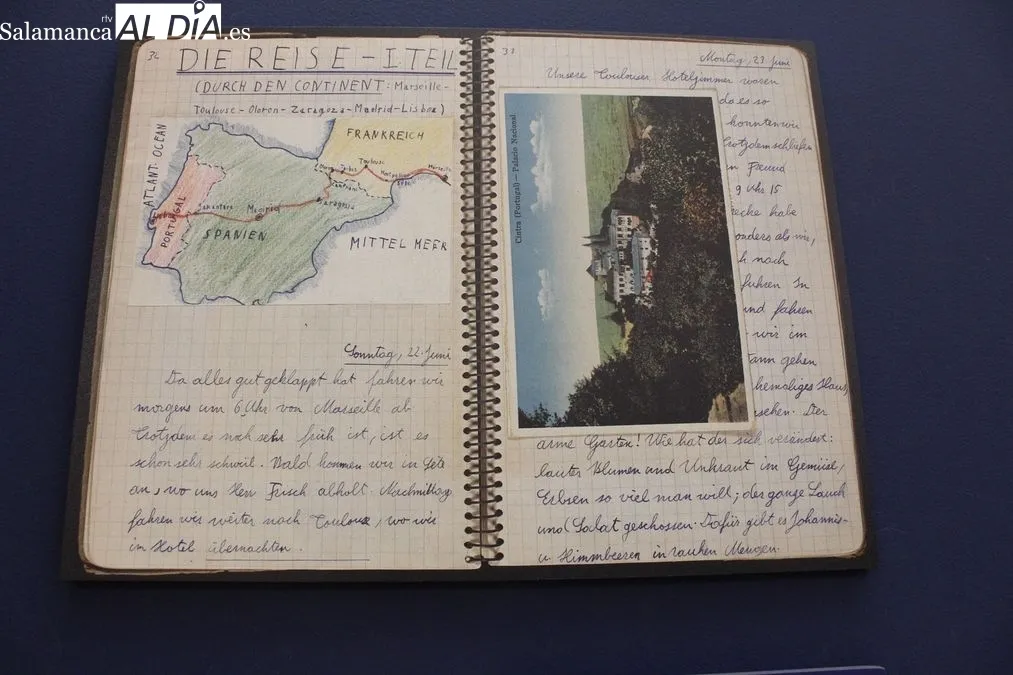 rtv
SalamancaALDÍA.es
32
DIE REISE - I. TEIL
(DURCH DEN CONTINENT: Marseille-
Toulouse - Oloron - Zaragoza - Madrid - Lisboa)
ATLANT. OCEAN
FRANKREICH
Toulouse
Marseille
Zaragoza
Madrid
PORTUGAL
SPANIEN
MITTEL MEER
Sonntag, 22. Juni
Da alles gut geklappt hat fahren wir
morgens um 6 Uhr von Marseille ab
trotzdem es noch sehr früh ist, ist es
schon sehr schwül. Bald kommen wir in Sète
an, wo uns Herr Frisch abholt. Nachmittags
fahren wir weiter nach Toulouse, wo wir
im Hotel übernachten.
Montag, 23. Juni
Unsere Toulouser Hotelzimmer waren
da es so
konnten wir
trotzdem schliefen
Freund
9 Uhr 15
habe
onders als wir,
h nach
fuhren In
und fahren
wir im
Dann gehen
ehemaliges Haus,
sehen. Der
arme Garten! Wie hat der sich verändert:
lauter Blumen und Unkraut im Gemüse,
Erbsen so viel man will; der ganze Lauch
und Salat geschossen. Dafür gibt es Johannis-
u. Himmbeeren in rauhen Mengen.
Cintra (Portugal) — Palacio Nacional